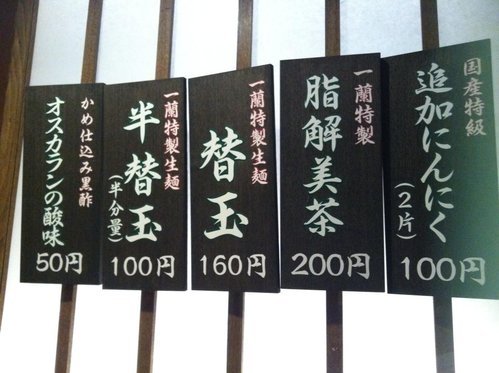 国産特級
追加にんにく
(2片)
100円
一蘭特製
脂解美茶
200円
一蘭特製生麺
替玉
160円
一蘭特製生麺
半替玉
(半分量)
100円
かめ仕込み黒酢
オスカランの酸味
50円